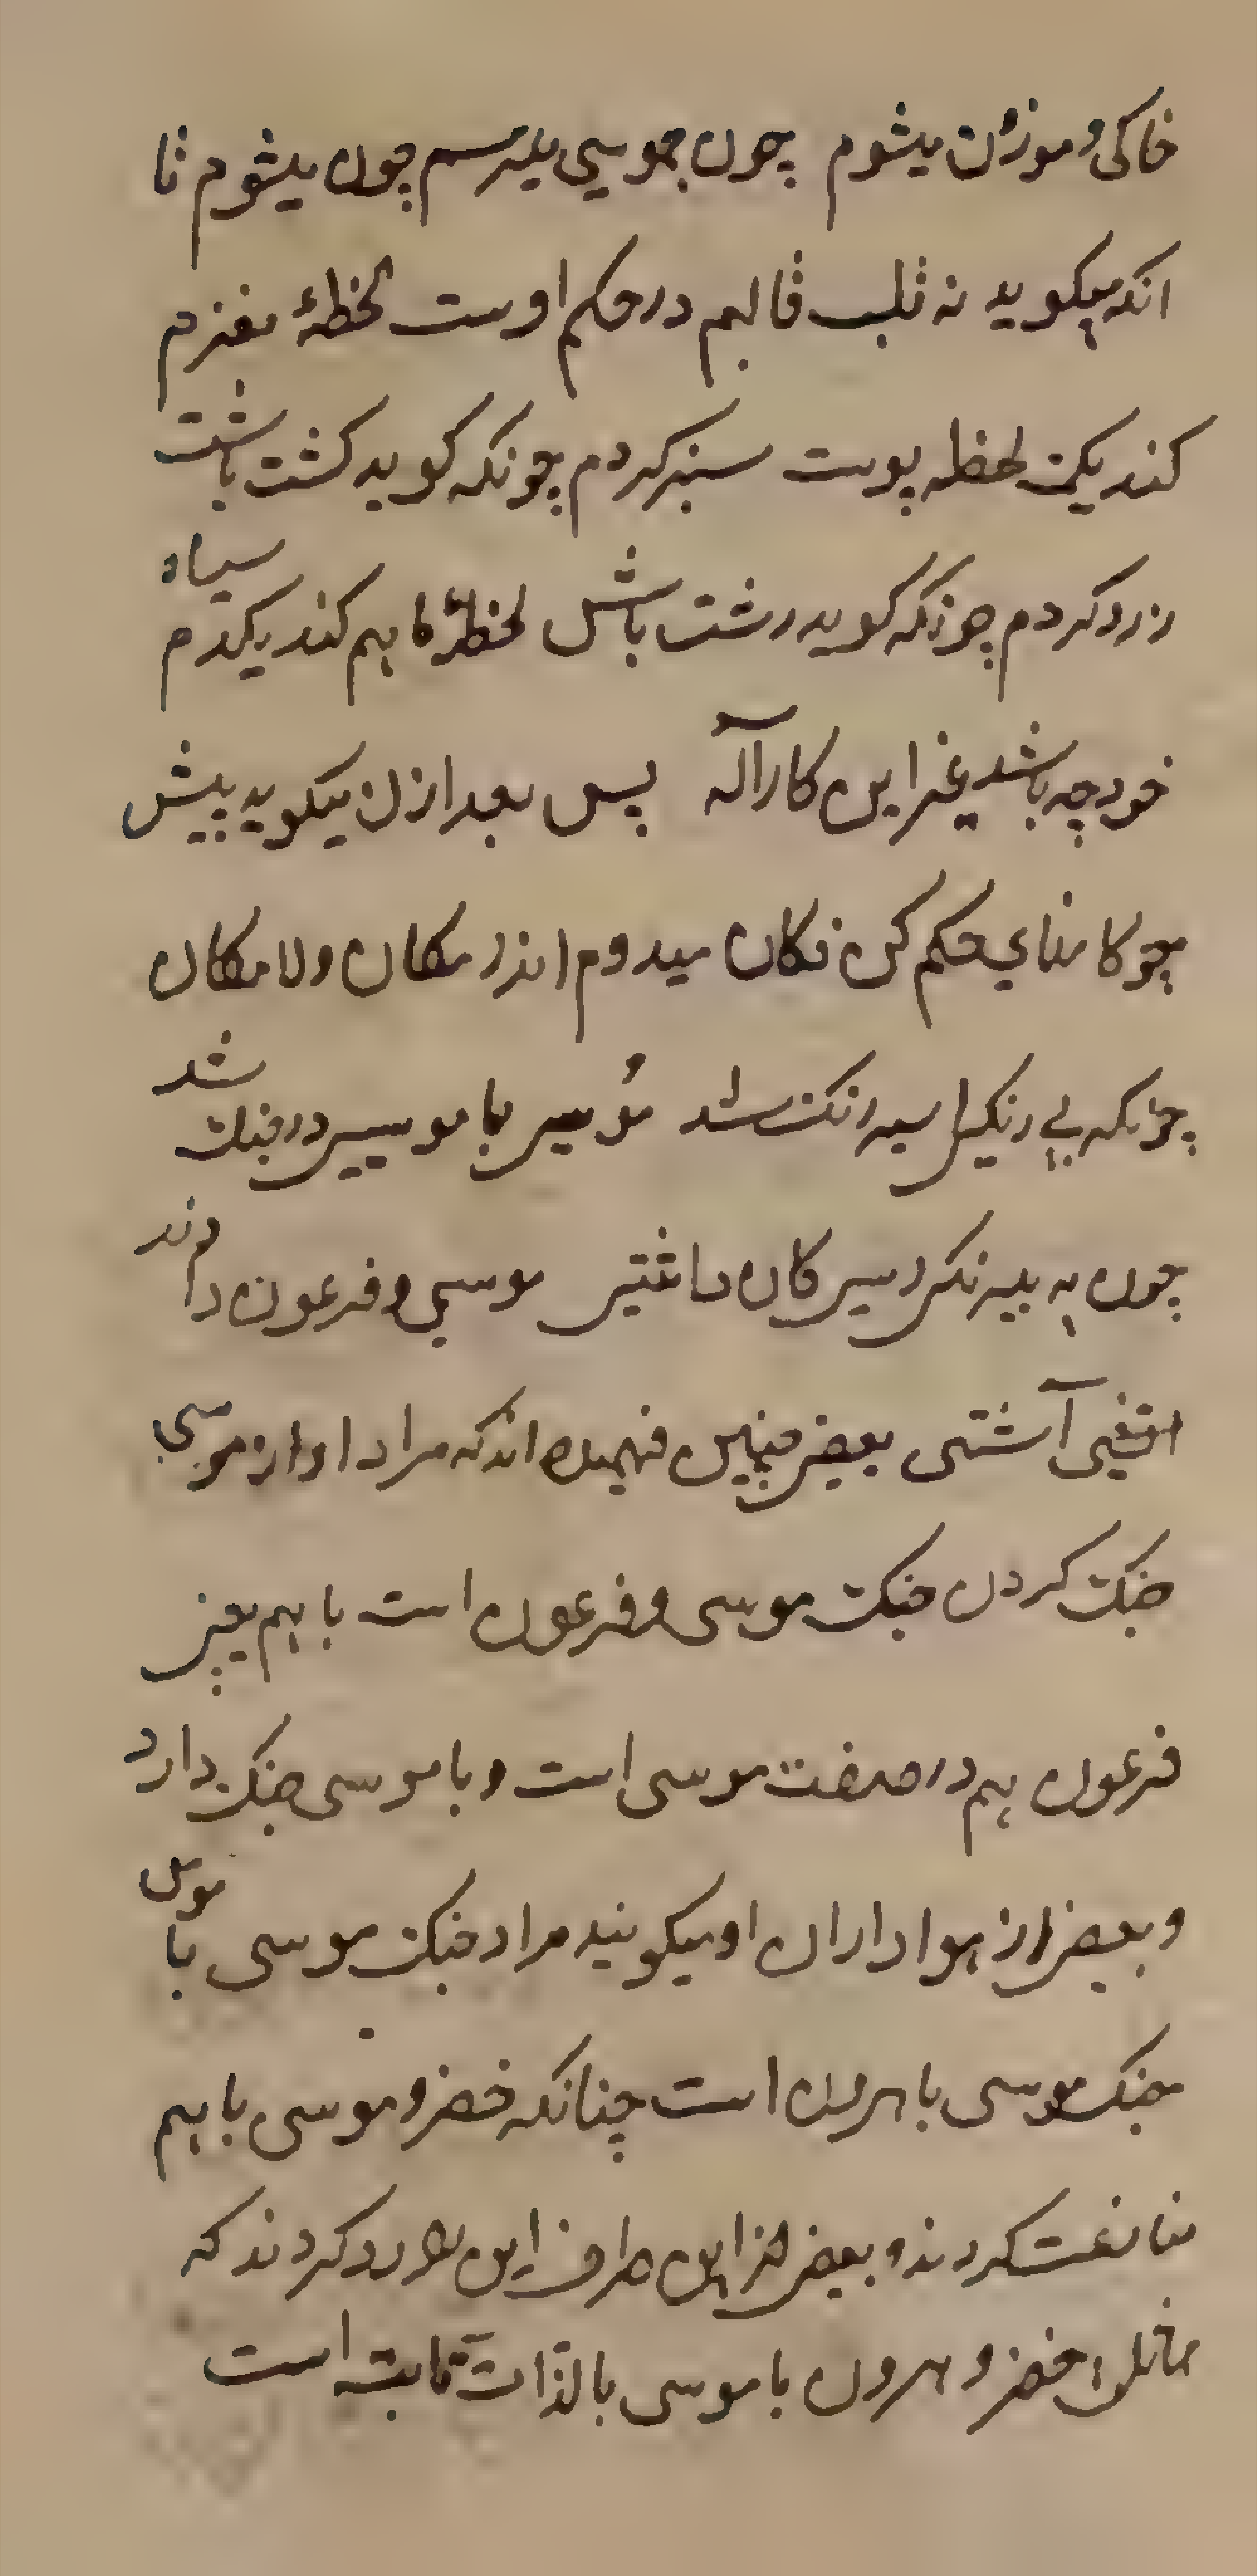 خاکی و موزن میشوم چون بموسی میرسم چون میشوم تا
انکه میکوید نه قلب قالبم در حکم اوست لحظهٔ مغزم
کند یک لحظه پوست سبز کردم چونکه کوید کشت باش
زرد کردم چونکه کوید زشت باش لحظهٔ ماهم کند یکدم سیاه
خود چه باشد غیر این کار آله پس بعد ازان میکوید پیش
چوکانهای حکم کن فکان میدوم اندر مکان و لامکان
چونکه بی رنکی اسیر رنک شد موسی با موسی در جنک شد
چون به بیرنکی رسی کان داشتی موسی و فرعون دارند
اشتی آشتی بعضی چنین فهمیده اند که مراد او از موسی
جنک کردن جنک موسی و فرعون است باهم یعنی
فرعون هم در صفت موسی است و با موسی جنک دارد
و بعضی از هواداران او میکویند مراد جنک موسی با موسی
جنک موسی با هرون است چنانکه خضر و موسی باهم
کردند و بعضی از این طرف این را رد کردند که
خضر و هرون با موسی بالذات ثابت است